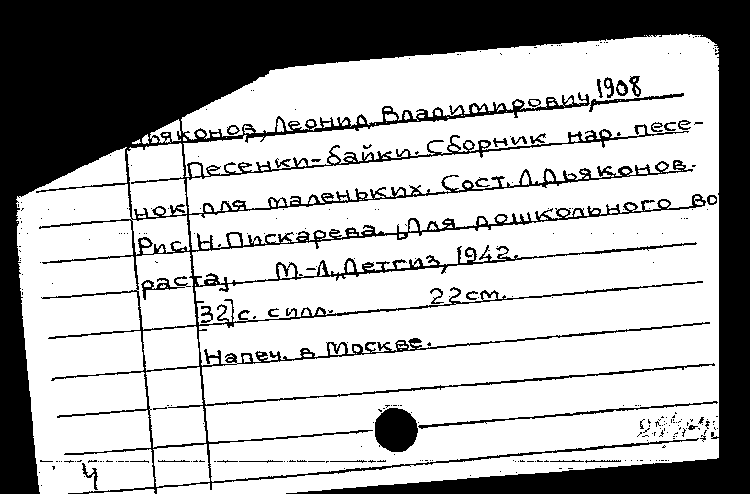 Дьяконов, Леонид Владимирович, 1908
Песенки-байки. Сборник нар. песе-
нок для маленьких. Сост. Л.Дьяконов.
Рис. Н.Пискарева. [Для дошкольного во
раста]. М.-Л., Детгиз, 1942.
[32]с. с илл. 22см.
Напеч. в Москве.
Ч